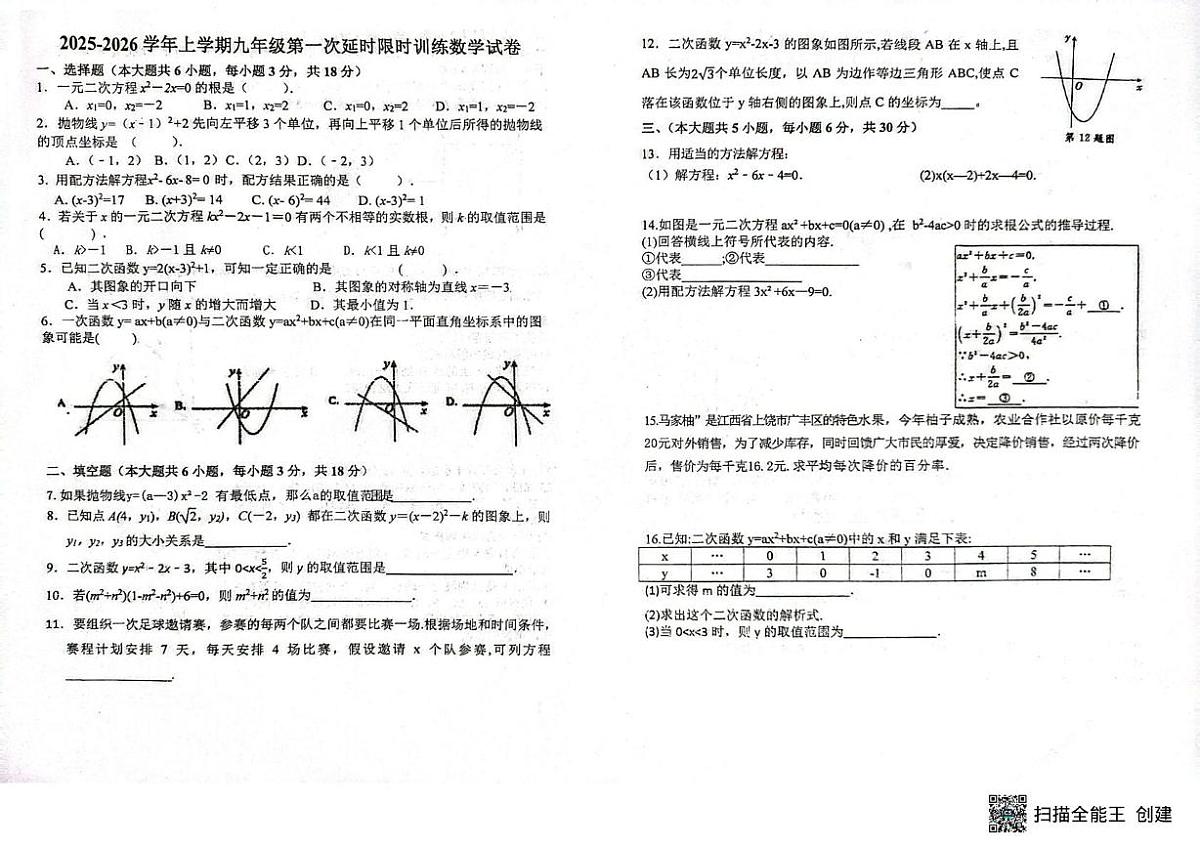 2025-2026 学年上学期九年级第一次延时限时训练数学试卷
一、选择题（本大题共 6 小题，每小题 3 分，共 18 分）
1. 一元二次方程 x²－2x=0 的根是（　　）.
A. x₁=0，x₂=－2　　B. x₁=1，x₂=2　　C. x₁=0，x₂=2　　D. x₁=1，x₂=－2
2. 抛物线 y=（x－1）²+2 先向左平移 3 个单位，再向上平移 1 个单位后所得的抛物线
的顶点坐标是 （　　）.
A.（－1，2） B.（1，2）C.（2，3）D.（－2，3）
3. 用配方法解方程x²- 6x- 8= 0 时，配方结果正确的是（　　）.
A. (x-3)²=17　　B. (x+3)²= 14　　C. (x- 6)²= 44　　D. (x-3)²= 1
4. 若关于 x 的一元二次方程 kx²－2x－1＝0 有两个不相等的实数根，则 k 的取值范围是
(　　).
A. k>－1　B. k>－1 且 k≠0　　C. k<1　　D. k<1 且 k≠0
5. 已知二次函数 y=2(x-3)²+1，可知一定正确的是　　(　　) .
A．其图象的开口向下　　B．其图象的对称轴为直线 x＝－3
C．当 x<3 时，y 随 x 的增大而增大　　D．其最小值为 1.
6. 一次函数 y= ax+b(a≠0)与二次函数 y=ax²+bx+c(a≠0)在同一平面直角坐标系中的图
象可能是(　　)
A.　y　O　x　B.　y　O　x　C.　y　O　x　D.　y　O　x
二、填空题（本大题共 6 小题，每小题 3 分，共 18 分）
7. 如果抛物线y=(a—3)x²-2 有最低点，那么a的取值范围是____________.
8. 已知点 A(4，y₁)，B(√2，y₂)，C(－2，y₃) 都在二次函数 y＝(x－2)²－k 的图象上，则
y₁，y₂，y₃ 的大小关系是____________.
9. 二次函数 y=x²﹣2x﹣3，其中 0<x<5/2，则 y 的取值范围是____________.
10. 若(m²+n²)(1-m²-n²)+6=0，则 m²+n² 的值为____________.
11. 要组织一次足球邀请赛，参赛的每两个队之间都要比赛一场.根据场地和时间条件，
赛程计划安排 7 天，每天安排 4 场比赛，假设邀请 x 个队参赛,可列方程
____________.
12. 二次函数 y=x²-2x-3 的图象如图所示,若线段 AB 在 x 轴上,且
AB 长为2√3个单位长度，以 AB 为边作等边三角形 ABC,使点 C
落在该函数位于 y 轴右侧的图象上,则点 C 的坐标为_____。
y　O　x
第 12 题图
三、（本大题共 5 小题，每小题 6 分，共 30 分）
13. 用适当的方法解方程:
（1）解方程：x²﹣6x﹣4=0.　　(2)x(x—2)+2x—4=0.
14.如图是一元二次方程 ax² +bx+c=0(a≠0) ,在 b²-4ac>0 时的求根公式的推导过程.
(1)回答横线上符号所代表的内容.
①代表______;②代表____________
③代表____________
(2)用配方法解方程 3x² +6x—9=0.
ax²+bx+c=0,
x²+b/a x=-c/a,
x²+b/a x+(b/2a)²=-c/a+ ① .
(x+b/2a)²=b²-4ac/4a².
∵b²-4ac>0,
∴x+b/2a= ② .
∴x= ③ .
15.马家柚”是江西省上饶市广丰区的特色水果，今年柚子成熟，农业合作社以原价每千克
20元对外销售，为了减少库存，同时回馈广大市民的厚爱，决定降价销售，经过两次降价
后，售价为每千克16.2元.求平均每次降价的百分率.
16.已知:二次函数 y=ax²+bx+c(a≠0)中的 x 和 y 满足下表:
x　…　0　1　2　3　4　5　…
y　…　3　0　-1　0　m　8　…
(1)可求得 m 的值为____________.
(2)求出这个二次函数的解析式.
(3)当 0<x<3 时，则 y 的取值范围为____________.
扫描全能王 创建